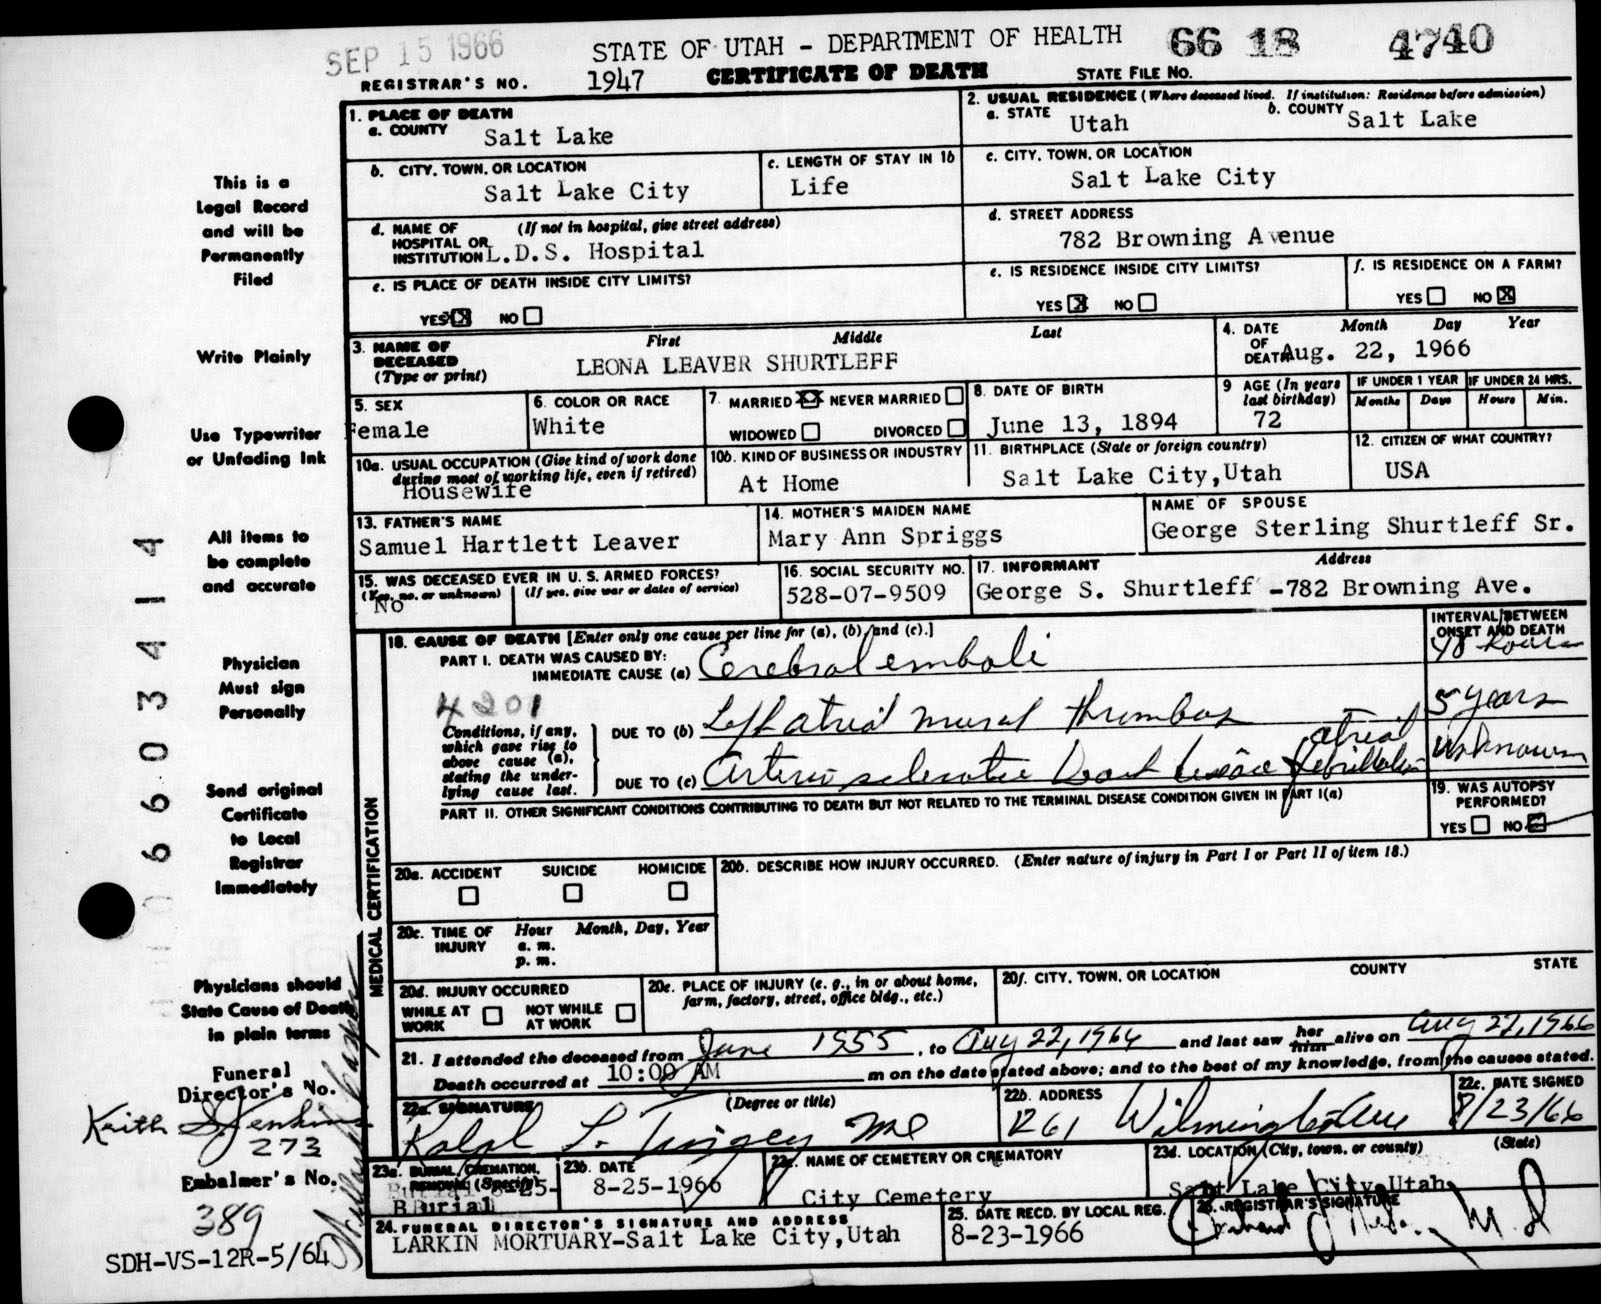 SEP 15 1966
STATE OF UTAH - DEPARTMENT OF HEALTH 66 18 4740
REGISTRAR'S NO. 1947 CERTIFICATE OF DEATH STATE FILE NO.
1. PLACE OF DEATH
a. COUNTY Salt Lake
2. USUAL RESIDENCE (Where deceased lived. If institution: Residence before admission)
a. STATE Utah b. COUNTY Salt Lake
b. CITY, TOWN, OR LOCATION Salt Lake City
c. LENGTH OF STAY IN 1b Life
c. CITY, TOWN, OR LOCATION Salt Lake City
d. NAME OF HOSPITAL OR INSTITUTION (If not in hospital, give street address) L.D.S. Hospital
d. STREET ADDRESS 782 Browning Avenue
e. IS PLACE OF DEATH INSIDE CITY LIMITS?
YES X NO
e. IS RESIDENCE INSIDE CITY LIMITS?
YES X NO
f. IS RESIDENCE ON A FARM?
YES NO X
3. NAME OF DECEASED (Type or print) First Middle Last
LEONA LEAVER SHURTLEFF
4. DATE OF DEATH Month Day Year
Aug. 22, 1966
5. SEX Female
6. COLOR OR RACE White
7. MARRIED X NEVER MARRIED
WIDOWED DIVORCED
8. DATE OF BIRTH June 13, 1894
9 AGE (In years last birthday) 72
IF UNDER 1 YEAR Months Days
IF UNDER 24 HRS. Hours Min.
10a. USUAL OCCUPATION (Give kind of work done during most of working life, even if retired) Housewife
10b. KIND OF BUSINESS OR INDUSTRY At Home
11. BIRTHPLACE (State or foreign country) Salt Lake City,Utah
12. CITIZEN OF WHAT COUNTRY? USA
13. FATHER'S NAME Samuel Hartlett Leaver
14. MOTHER'S MAIDEN NAME Mary Ann Spriggs
NAME OF SPOUSE George Sterling Shurtleff Sr.
15. WAS DECEASED EVER IN U. S. ARMED FORCES?
(Yes, no. or unknown) (If yes, give war or dates of service)
No
16. SOCIAL SECURITY NO. 528-07-9509
17. INFORMANT Address
George S. Shurtleff -782 Browning Ave.
18. CAUSE OF DEATH [Enter only one cause per line for (a), (b), and (c).]
INTERVAL BETWEEN ONSET AND DEATH
PART I. DEATH WAS CAUSED BY:
IMMEDIATE CAUSE (a) Cerebral emboli 48 hours
4201
Conditions, if any, which gave rise to above cause (a), stating the underlying cause last.
DUE TO (b) Left atrial mural thrombus 5 years
DUE TO (c) Arteriosclerotic heart disease atrial fibrillation Unknown
PART II. OTHER SIGNIFICANT CONDITIONS CONTRIBUTING TO DEATH BUT NOT RELATED TO THE TERMINAL DISEASE CONDITION GIVEN IN PART I(a)
19. WAS AUTOPSY PERFORMED?
YES NO
MEDICAL CERTIFICATION
20a. ACCIDENT SUICIDE HOMICIDE
20b. DESCRIBE HOW INJURY OCCURRED. (Enter nature of injury in Part I or Part II of item 18.)
20c. TIME OF INJURY Hour Month, Day, Year
a. m.
p. m.
20d. INJURY OCCURRED
WHILE AT WORK NOT WHILE AT WORK
20e. PLACE OF INJURY (e. g., in or about home, farm, factory, street, office bldg., etc.)
20f. CITY, TOWN, OR LOCATION COUNTY STATE
21. I attended the deceased from June 1955, to Aug 22, 1966 and last saw her him alive on Aug 22, 1966
Death occurred at 10:00 AM m on the date stated above; and to the best of my knowledge, from the causes stated.
22a. SIGNATURE (Degree or title)
Ralph L. Tingey MD
22b. ADDRESS 1261 Wilmington Ave
22c. DATE SIGNED 8/23/66
23a. BURIAL, CREMATION, REMOVAL (Specify)
Burial 8-25-
BBurial
23b. DATE 8-25-1966
23c. NAME OF CEMETERY OR CREMATORY City Cemetery
23d. LOCATION (City, town, or county) (State)
Salt Lake City, Utah
24. FUNERAL DIRECTOR'S SIGNATURE AND ADDRESS
LARKIN MORTUARY-Salt Lake City,Utah
25. DATE RECD. BY LOCAL REG. 8-23-1966
26. REGISTRAR'S SIGNATURE
M.D.
This is a
Legal Record
and will be
Permanently
Filed
Write Plainly
Use Typewriter
or Unfading Ink
All items to
be complete
and accurate
Physician
Must sign
Personally
Send original
Certificate
to Local
Registrar
Immediately
Physicians should
State Cause of Death
in plain terms
Funeral
Director's No.
Keith S. Jenkins
273
Embalmer's No.
389
SDH-VS-12R-5/64
06603414